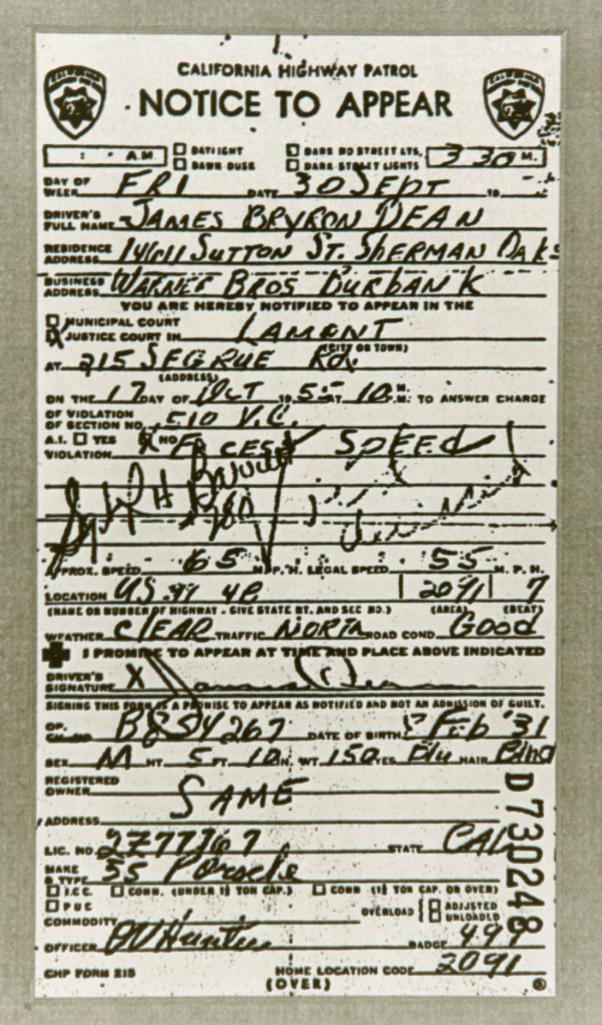 CALIFORNIA HIGHWAY PATROL
NOTICE TO APPEAR
: A.M. DAYLIGHT DARK NO STREET LTS. 3 30 M.
DAWN DUSK DARK-STREET LIGHTS
DAY OF WEEK FRI DATE 30 SEPT 19
DRIVER'S FULL NAME JAMES BRYRON DEAN
RESIDENCE ADDRESS 14611 SUTTON ST. SHERMAN OAKS
BUSINESS ADDRESS WARNER BROS BURBANK
YOU ARE HEREBY NOTIFIED TO APPEAR IN THE
MUNICIPAL COURT
X JUSTICE COURT IN LAMONT
(CITY OR TOWN)
AT 215 SEGRUE RD.
(ADDRESS)
ON THE 17 DAY OF OCT 1955 AT 10 M. TO ANSWER CHARGE
OF VIOLATION OF SECTION NO. 510 V.C.
A.I. YES X NO
VIOLATION EXCESS SPEED
APPROX. SPEED 65 M.P.H. LEGAL SPEED 55 M.P.H.
LOCATION US 99 2091 7
(NAME OR NUMBER OF HIGHWAY - GIVE STATE RT. AND SEC NO.) (AREA) (BEAT)
WEATHER CLEAR TRAFFIC NORTH ROAD COND. Good
I PROMISE TO APPEAR AT TIME AND PLACE ABOVE INDICATED
DRIVER'S SIGNATURE X James Dean
SIGNING THIS FORM IS A PROMISE TO APPEAR AS NOTIFIED AND NOT AN ADMISSION OF GUILT.
OP. B854267 DATE OF BIRTH 8 Feb '31
SEX M HT 5 FT. 10 IN. WT 150 EYES Blu HAIR Blnd
REGISTERED OWNER SAME
ADDRESS
LIC. NO. 2Z77767 STATE CAL
MAKE & TYPE 55 Porsche
I.C.C. COMM. (UNDER 1½ TON CAP.) COMM (1½ TON CAP. OR OVER)
PUC OVERLOAD ADJUSTED UNLOADED
COMMODITY
OFFICER OV Hunter BADGE 499
CHP FORM 215 HOME LOCATION CODE 2091
(OVER)
D730248